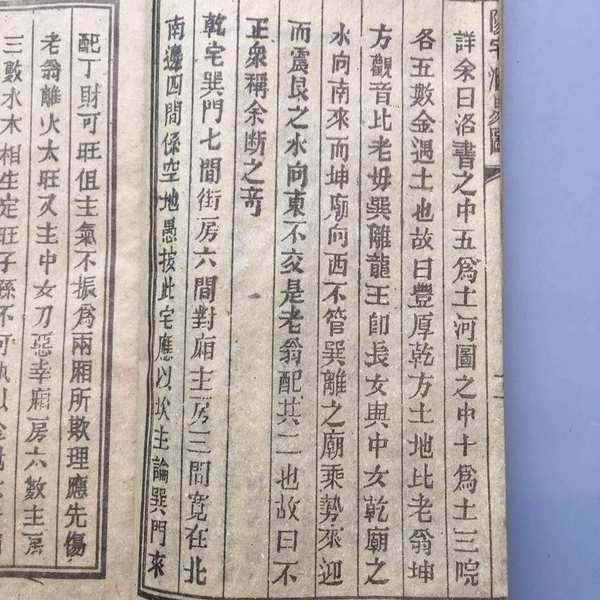 詳余曰洛書之中五為土河圖之中十為土三院
各五數金遇土也故曰豐厚乾方土地比老翁坤
方觀音比老母巽離龍王即長女與中女乾廟之
水向南來而坤廟向西不管巽離之廟乘勢來迎
而震艮之水向東不交是老翁配其二也故曰不
正衆稱余斷之竒
乾宅巽門七間街房六間對廂主房三間寬在北
南邊四間係空地愚按此宅應以坎主論巽門來
配丁財可旺但主氣不振為兩廂所欺理應先傷
老翁離火太旺又主中女刀惡幸廂房六數主房
三數水木相生定旺子孫不可